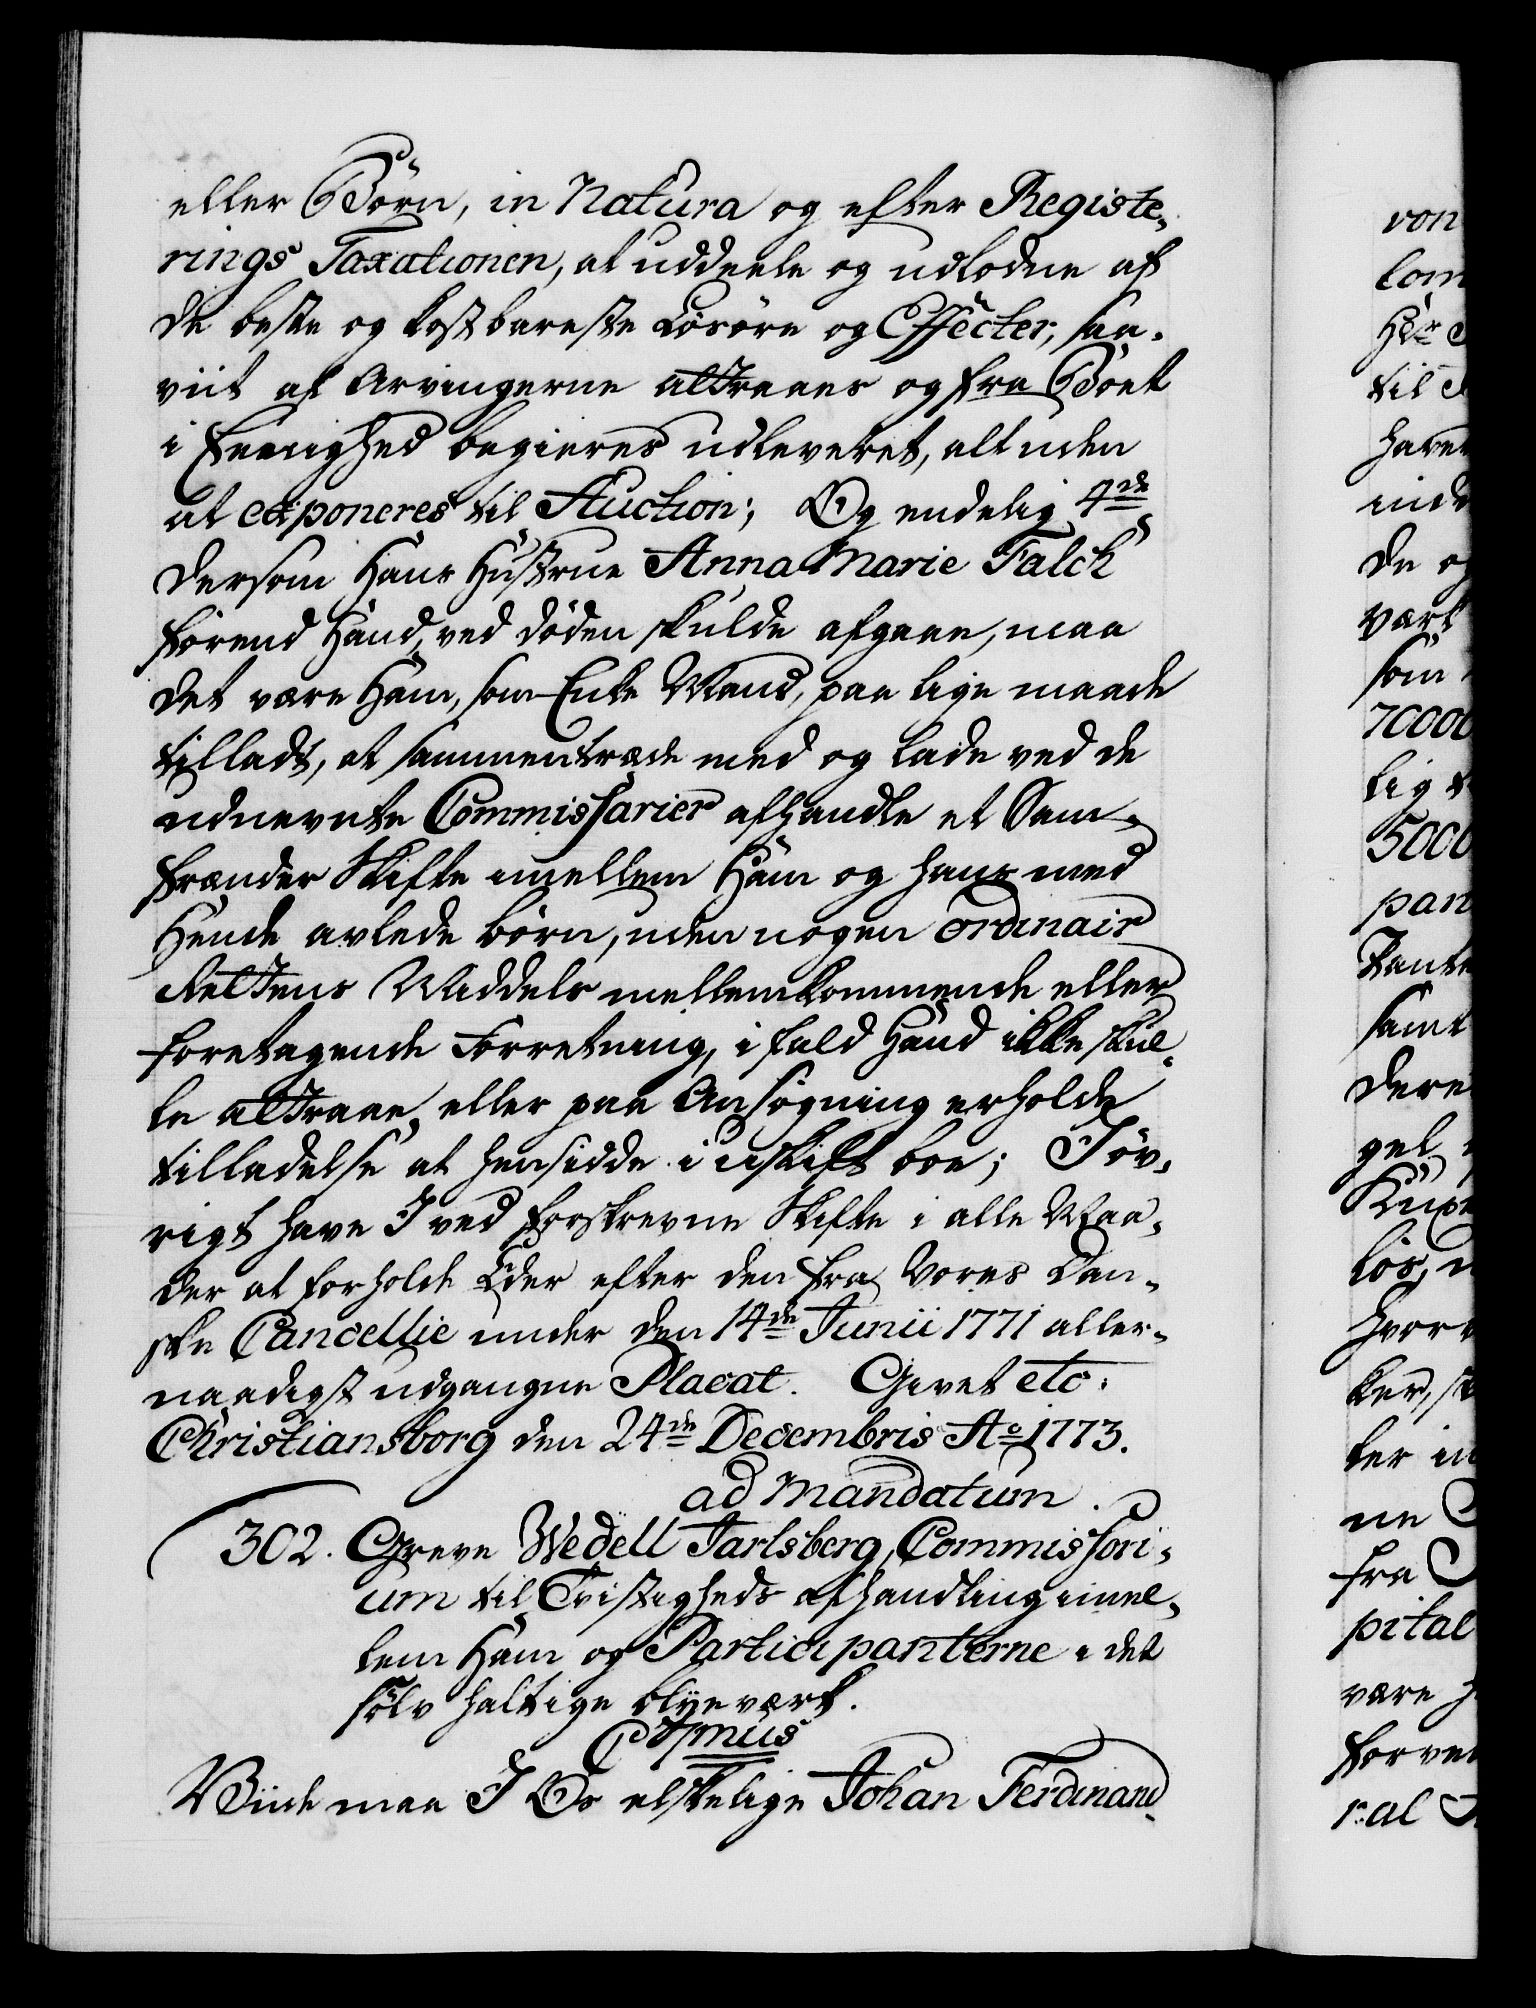 eller Börn, in Natura og efter Registe-
rings Taxationen, at uddeele og udlodne af
de beste og kostbareste Lösöre og Effecter, saa-
viit af Arvingerne attraaes og fra Boet
i Eenighed begieres udleveret, alt uden
at exponeres til Auction; Og endelig 4de
dersom Hans Hustrue Anna Marie Falch
förend Hand, ved döden skulde afgaae, maa
det være Ham, som Enke Mand, paa lige maade
tilladt, at sammentræde med og lade ved de
udnevnte Commissarier afhandle et Sam-
frænder Skifte imellem Ham og hans med
Hende avlede börn, uden nogen ordinair
Rettens Middels mellemkommende eller
foretagende Forretning, i fald Hand ikke skul-
le attraae, eller paa Ansögning erholde
tilladelse at hensidde i uskift boe; Iöv-
rigt have I ved forskrevne Skifte i alle Maa-
der at forholde Eder efter den fra Vores Dan-
ske Cancellie under den 14de Junii 1771 aller-
naadigst udgangne Placat. Givet etc.
Christiansborg den 24de Decembris Ao 1773.
ad Mandatum.
302. Greve Wedell Jarlsberg, Commissori-
um til Tvistigheds afhandling imel-
lem Ham og Participanterne i det
sölv haltige blyeværk.
C 7mus
Viide maa I Os elskelige Johan Ferdinand
von
som
til
have
inde
de og
værk
som
70000
lig
5000
pan
samt
dere
gel
lös,
hvor
ker,
ler in
ne
fra
pital
være